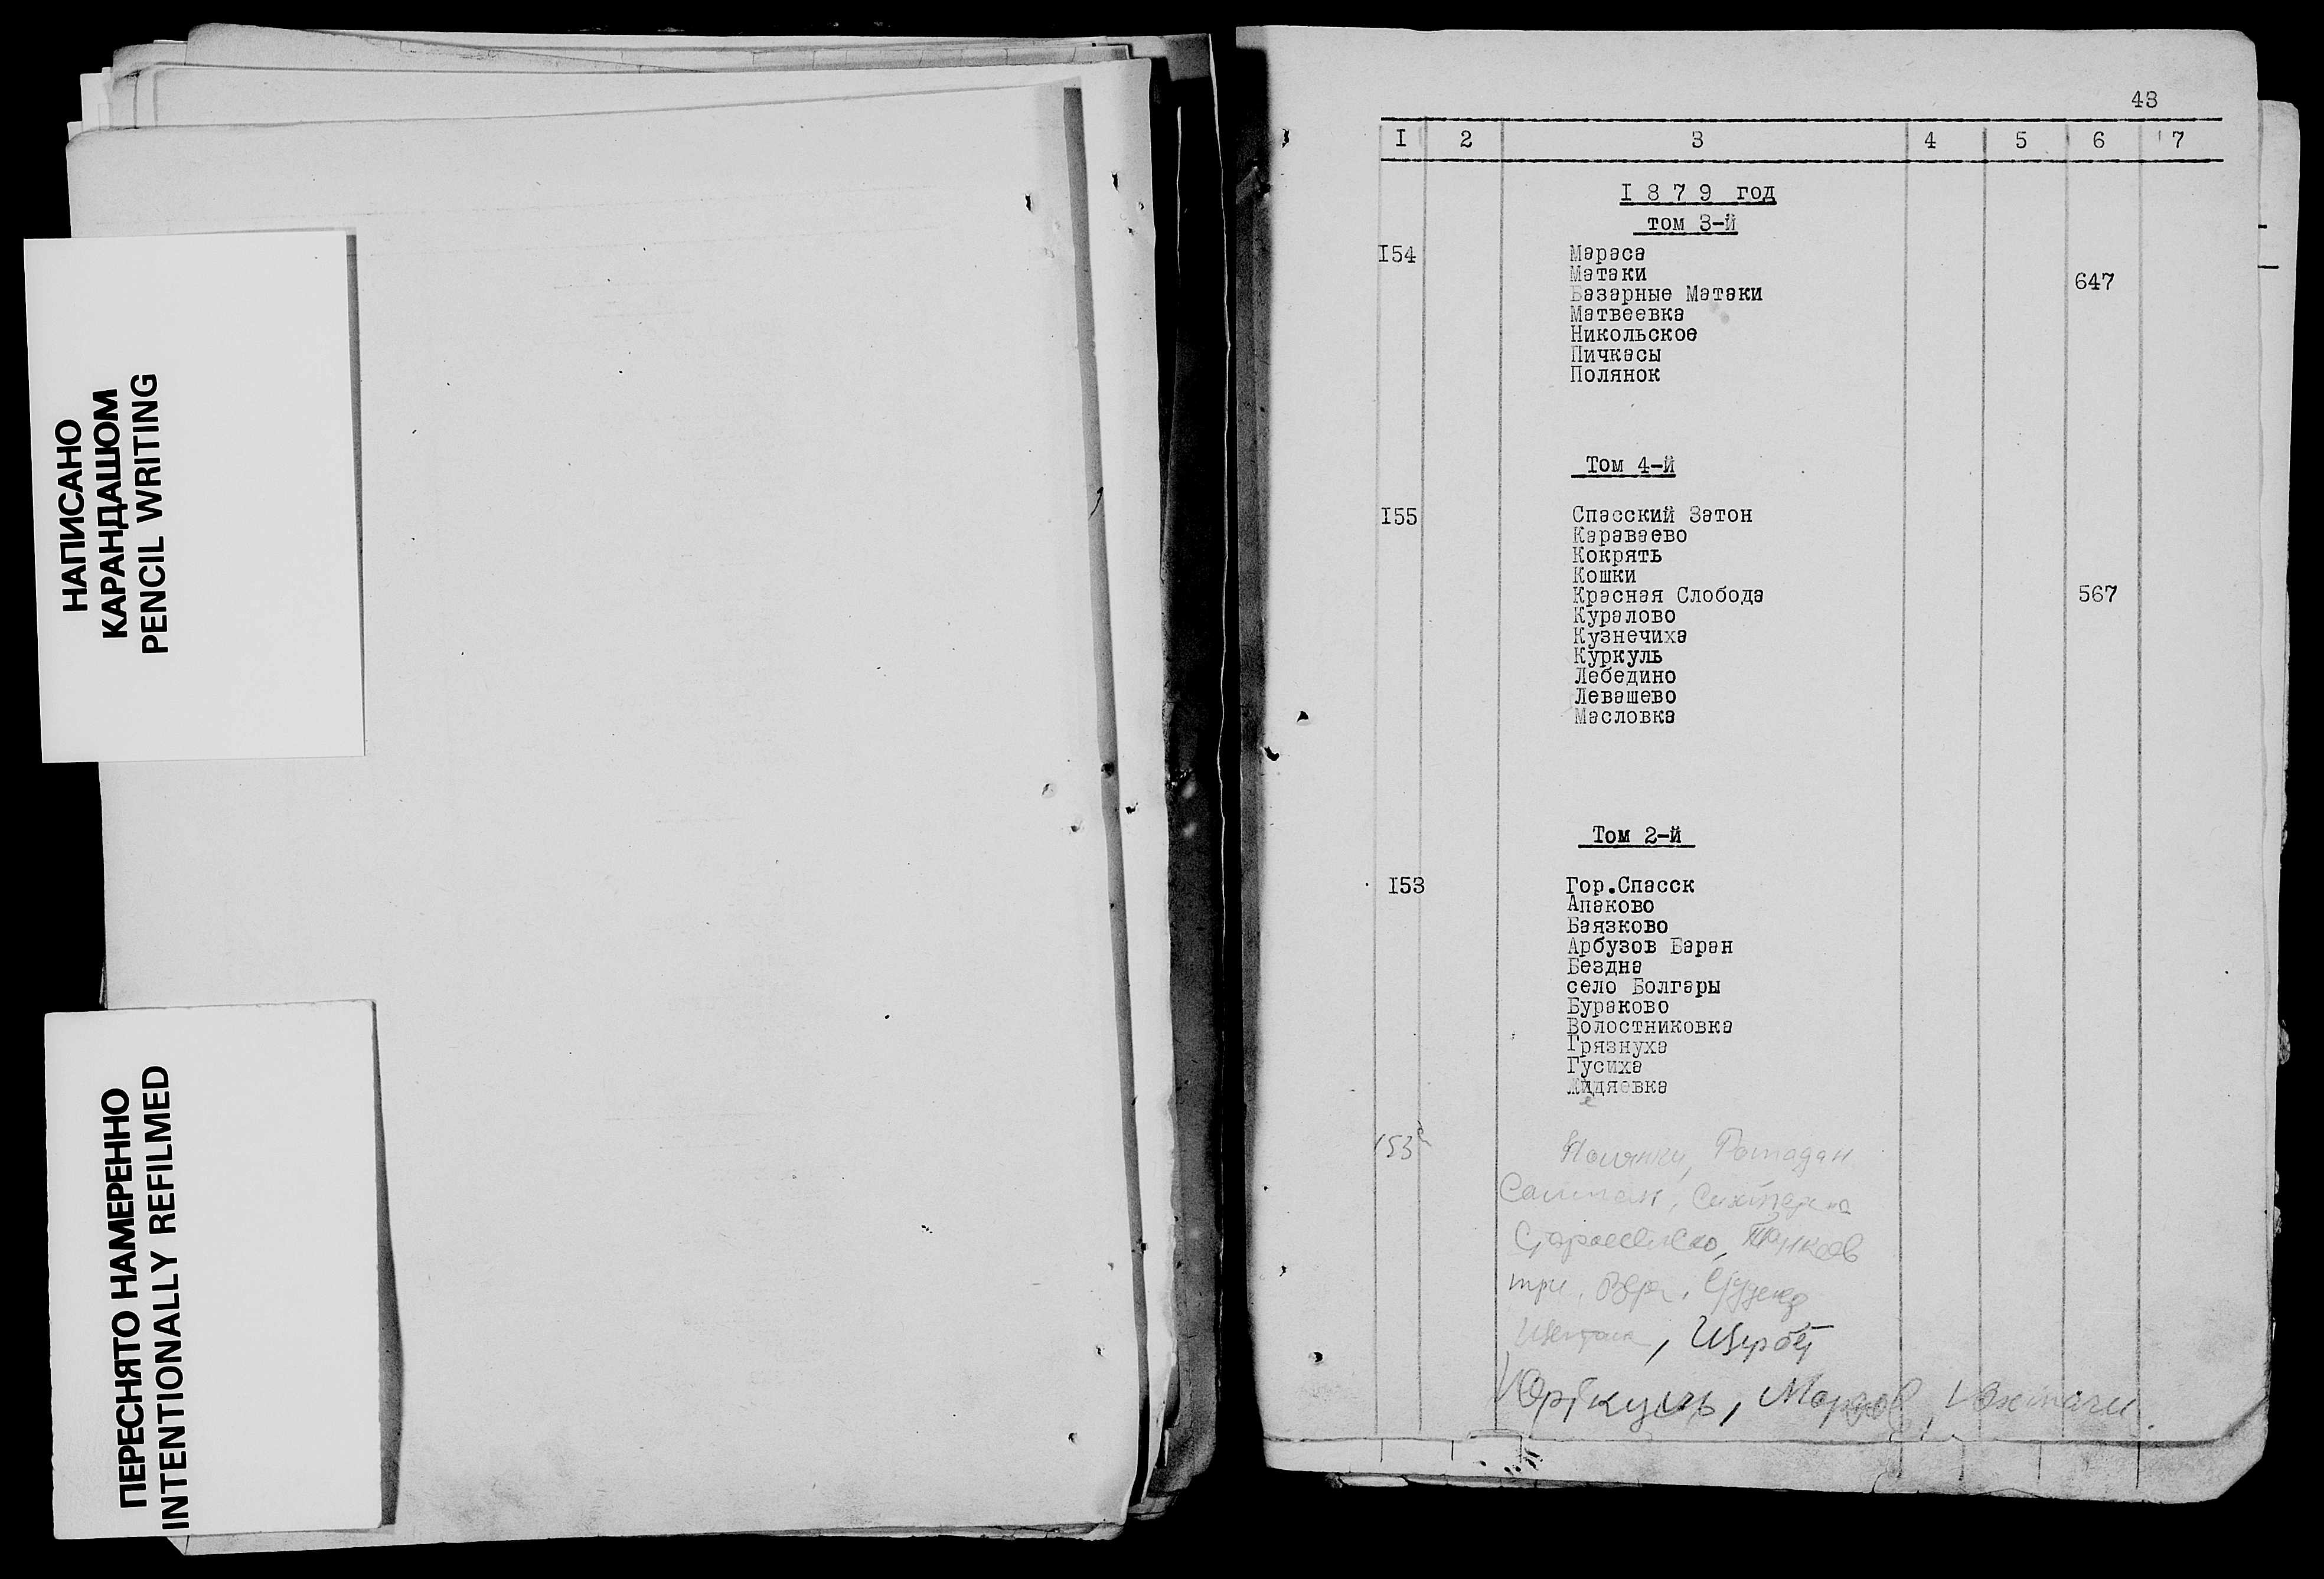 НАПИСАНО
КАРАНДАШОМ
PENCIL WRITING
ПЕРЕСНЯТО НАМЕРЕННО
INTENTIONALLY REFILMED
43
I 2 3 4 5 6 7
I 8 7 9 год
том 3-й
I54 Мараса
Матаки
647
Базарные Матаки
Матвеевка
Никольское
Пичкасы
Полянок
Том 4-й
I55 Спасский Затон
Караваево
Кокрять
Кошки
Красная Слобода 567
Куралово
Кузнечиха
Куркуль
Лебедино
Левашево
Масловка
Том 2-й
I53 Гор.Спасск
Апаково
Баязково
Арбузов Баран
Бездна
село Болгары
Бураково
Волостниковка
Грязнуха
Гусиха
Жидяевка
153а Полянки, Рамадан
Салман,
три,
Юрткуль, Мордов,